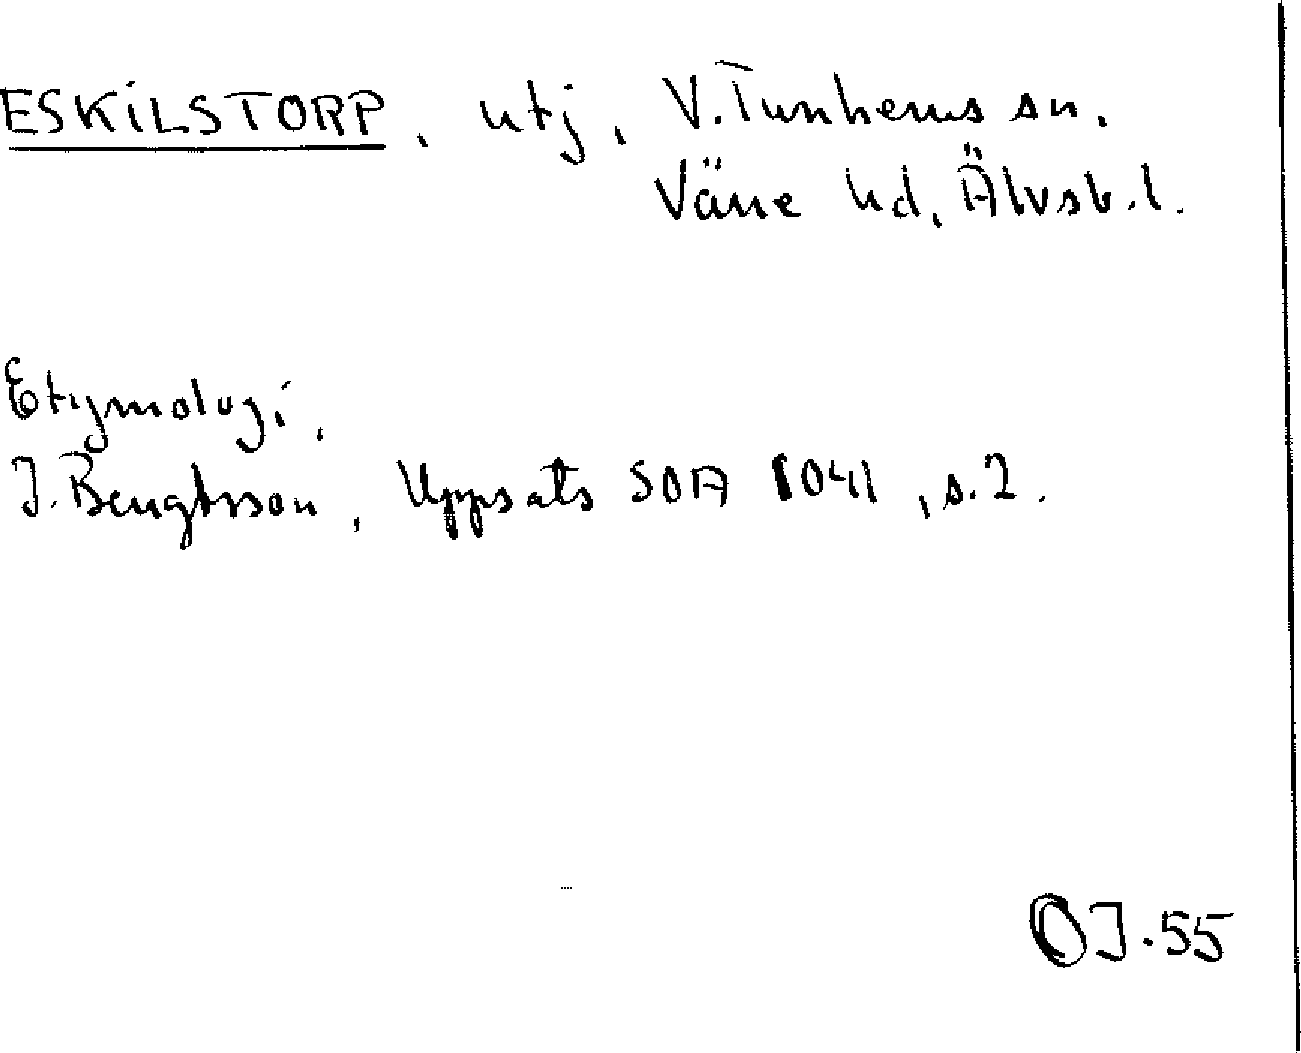 ESKILSTORP, utj, V. Tunhems sn.
Väne hd, Älvsb. l.
Etymologi.
J. Bengtsson, Uppsats SOA 1041, s. 2.
OJ. 55